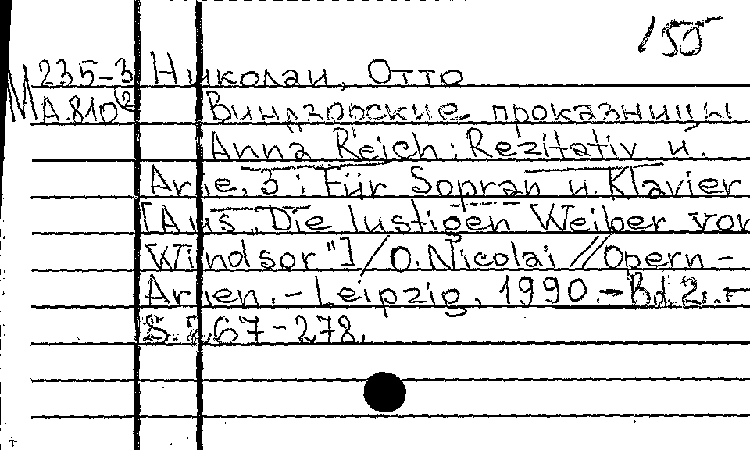 155
М 235-3 Николаи, Отто
А.810(2) Виндзорские проказницы
Anna Reich: Rezitativ u.
Arie. 3: Für Sopran u. Klavier
[Aus „Die lustigen Weiber von
Windsor"] / O. Nicolai // Opern-
Arien. - Leipzig, 1990. - Bd. 2. -
S. 267-278.